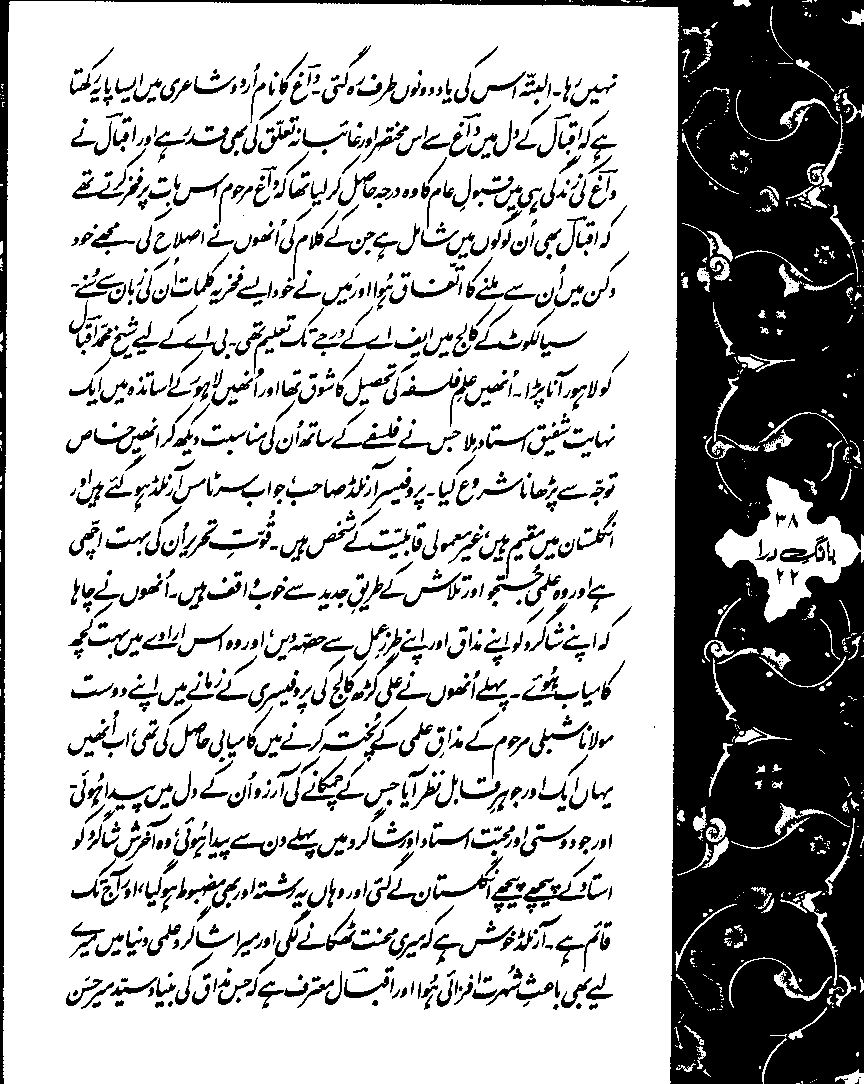 نہیں رہا۔ البتّہ اس کی یاد دونوں طرف رہ گئی۔ داغؔ کا نام اُردو شاعری میں ایسا پایہ رکھتا
ہے کہ اقبالؔ کے دل میں داغؔ سے اس مختصر اور غائبانہ تعلّق کی بھی قدر ہے اور اقبالؔ نے
داغؔ کی زندگی ہی میں قبولِ عام کا وہ درجہ حاصل کر لیا تھا کہ داغؔ مرحوم اس بات پر فخر کرتے تھے
کہ اقبالؔ بھی اُن لوگوں میں شامل ہے جن کے کلام کی اُنھوں نے اصلاح کی۔ مجھے خود
دکن میں اُن سے ملنے کا اتّفاق ہُوا اور مَیں نے خود ایسے فخریہ کلمات اُن کی زبان سے سُنے۔
سیالکوٹ کے کالج میں ایف اے کے درجے تک تعلیم تھی۔ بی اے کے لیے شیخ محمد اقبالؔ
کو لاہور آنا پڑا۔ اُنھیں علمِ فلسفہ کی تحصیل کا شوق تھا اور اُنھیں لاہور کے اساتذہ میں ایک
نہایت شفیق استاد مِلا جس نے فلسفے کے ساتھ اُن کی مناسبت دیکھ کر انھیں خاص
توجّہ سے پڑھانا شروع کیا۔ پروفیسر آرنلڈ صاحب، جو اب سر ٹامس آرنلڈ ہو گئے ہیں اور
انگلستان میں مقیم ہیں، غیر معمولی قابلیّت کے شخص ہیں۔ قُوّتِ تحریر اُن کی بہت اچھی
ہے اور وہ علمی جُستجو اور تلاش کے طریقِ جدید سے خوب واقف ہیں۔ اُنھوں نے چاہا
کہ اپنے شاگرد کو اپنے مذاق اور اپنے طرزِ عمل سے حصّہ دیں، اور وہ اس ارادے میں بہت کچھ
کامیاب ہُوئے۔ پہلے اُنھوں نے علی گڑھ کالج کی پروفیسری کے زمانے میں اپنے دوست
مولانا شبلی مرحوم کے مذاقِ علمی کے پُختہ کرنے میں کامیابی حاصل کی تھی، اب اُنھیں
یہاں ایک اور جوہرِ قابل نظر آیا جس کے چمکانے کی آرزو اُن کے دل میں پیدا ہُوئی۔
اور جو دوستی اور محبّت استاد اور شاگرد میں پہلے دن سے پیدا ہُوئی، وہ آخرش شاگرد کو
استاد کے پیچھے پیچھے انگلستان لے گئی اور وہاں یہ رشتہ اور بھی مضبوط ہو گیا، اور آج تک
قائم ہے۔ آرنلڈ خوش ہے کہ میری محنت ٹھکانے لگی اور میرا شاگرد علمی دنیا میں میرے
لیے بھی باعثِ شہرت افزائی ہُوا اور اقبالؔ معترف ہے کہ جس مذاق کی بنیاد سیّد میر حسَن
۳۸
بانگِ درا
۲۲